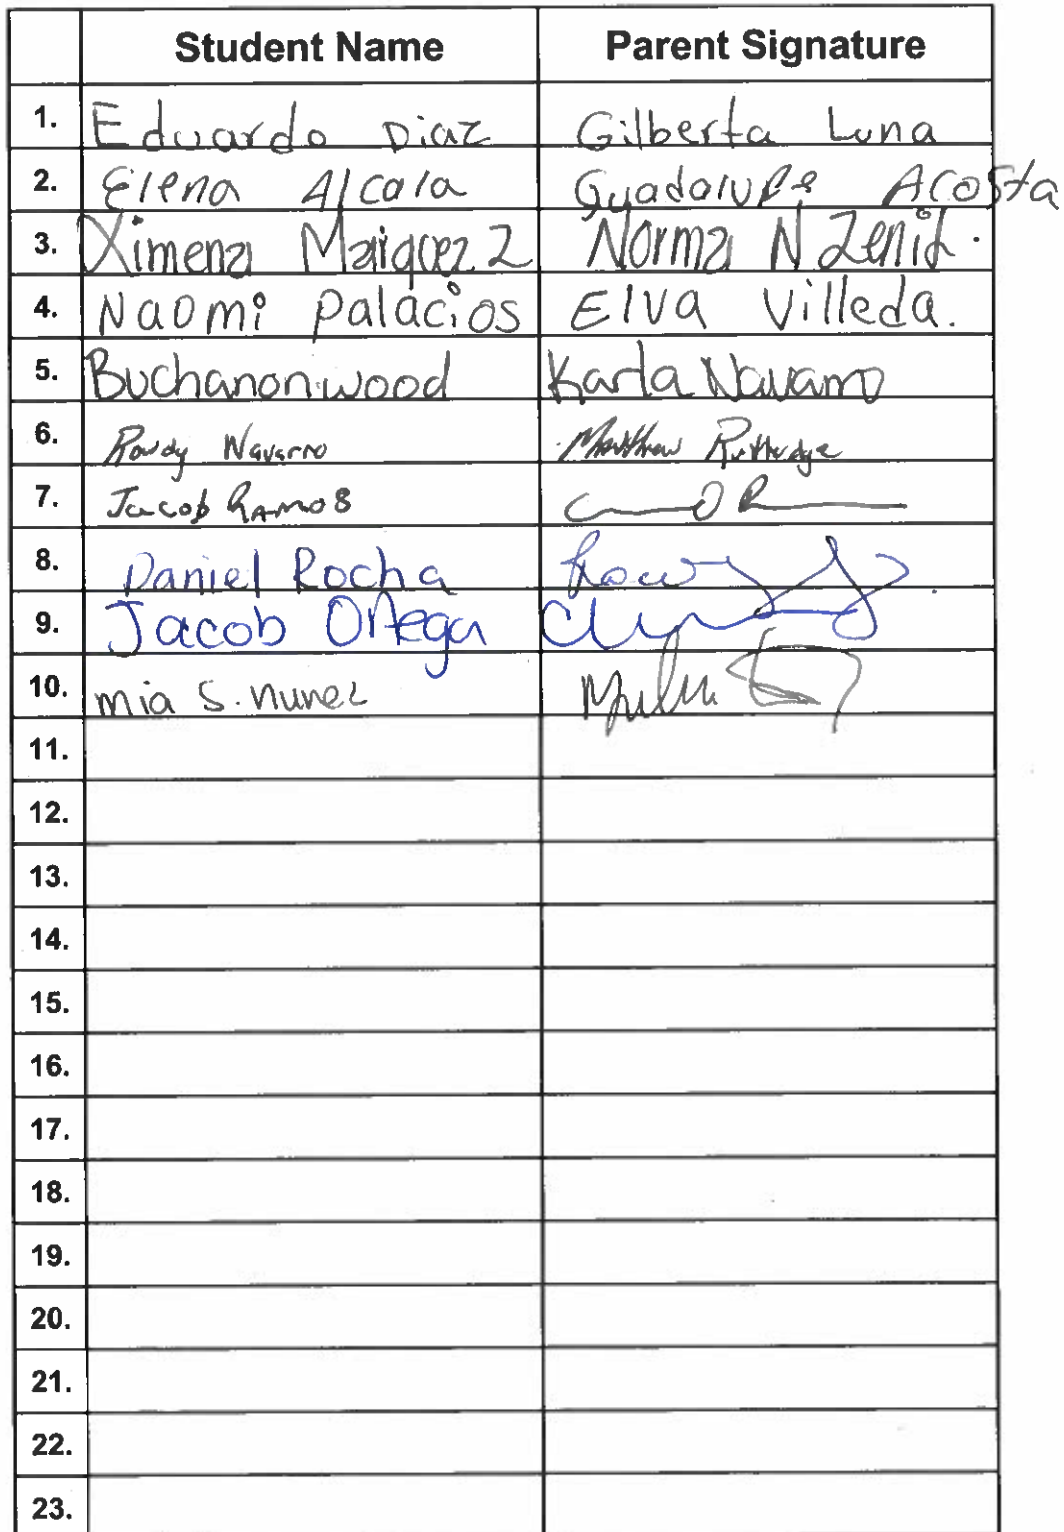 Student Name Parent Signature
1. Eduardo Diaz Gilberta Luna
2. Elena Alcala Guadalupe Acosta
3. Ximena Marquez Z Norma N Zenit.
4. Naomi palacios Elva Villeda.
5. Buchanon wood Karla Navarro
6. Rowdy Navarro Matthew Rutledge
7. Jacob Ramos
8. Daniel Rocha
9. Jacob Ortega
10. mia S. nunez
11.
12.
13.
14.
15.
16.
17.
18.
19.
20.
21.
22.
23.